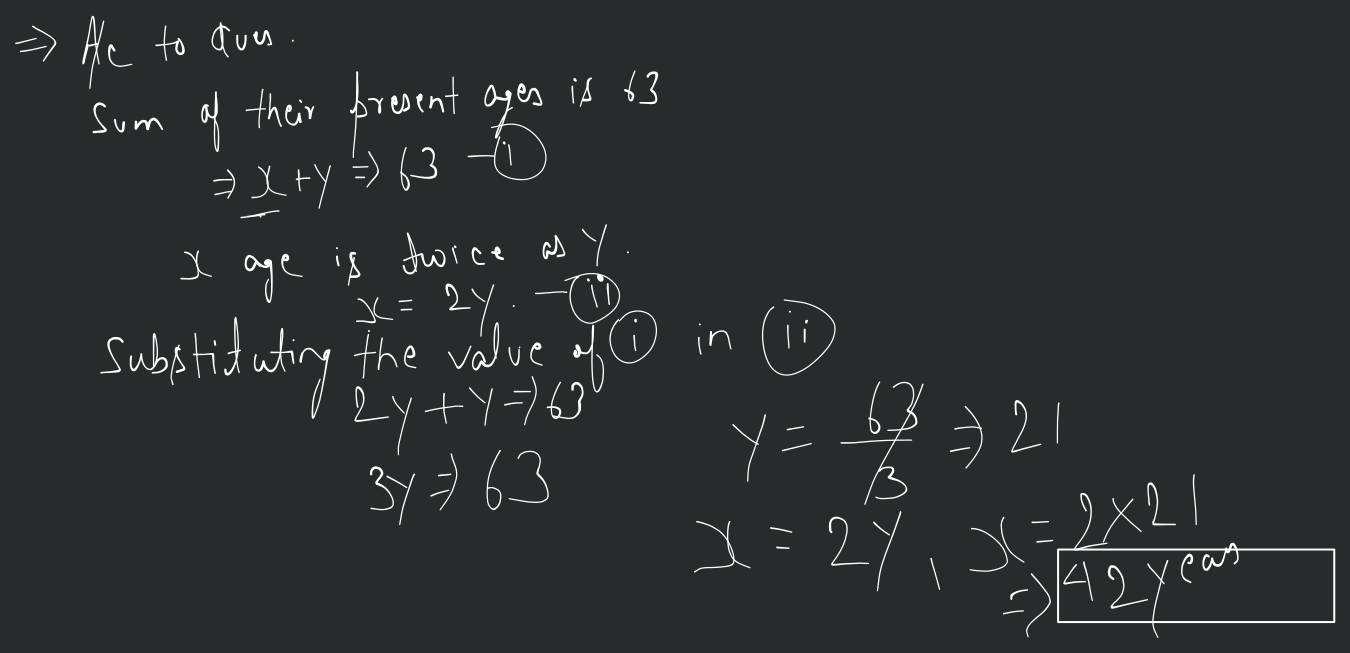 ⇒ A/c to Ques.
Sum of their present ages is 63
⇒ x+y ⇒ 63 —(i)
x age is twice as y.
x = 2y. —(ii)
Substituting the value of (i) in (ii)
2y+y ⇒ 63
3y ⇒ 63
y = 63/3 ⇒ 21
x = 2y, x = 2×21
⇒ 42 years